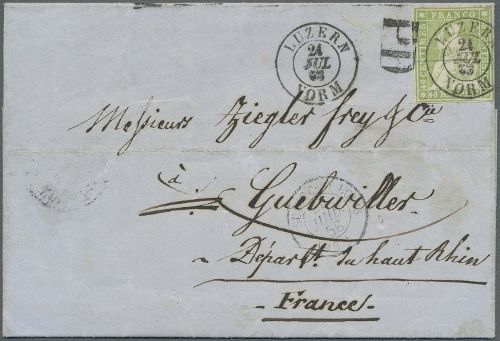 LUZERN
24
JUL
63
VORM
PD
FRANCO
LUZERN
24
JUL
63
VORM
Messieurs Ziegler frey & Cie
à
Guebwiller
Départt. du haut Rhin
France